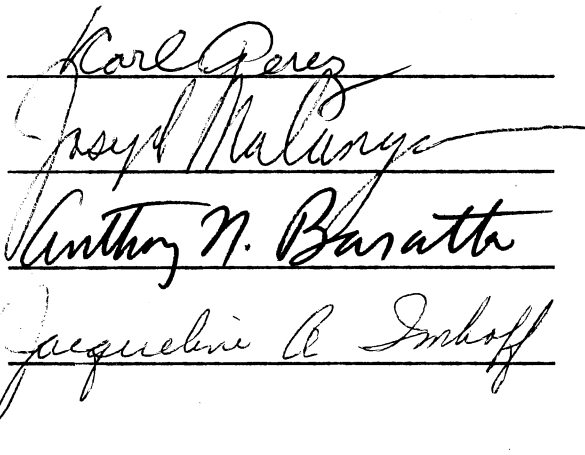 Karl Perez
Joseph Malanga
Anthony N. Baratta
Jacqueline A Imhoff